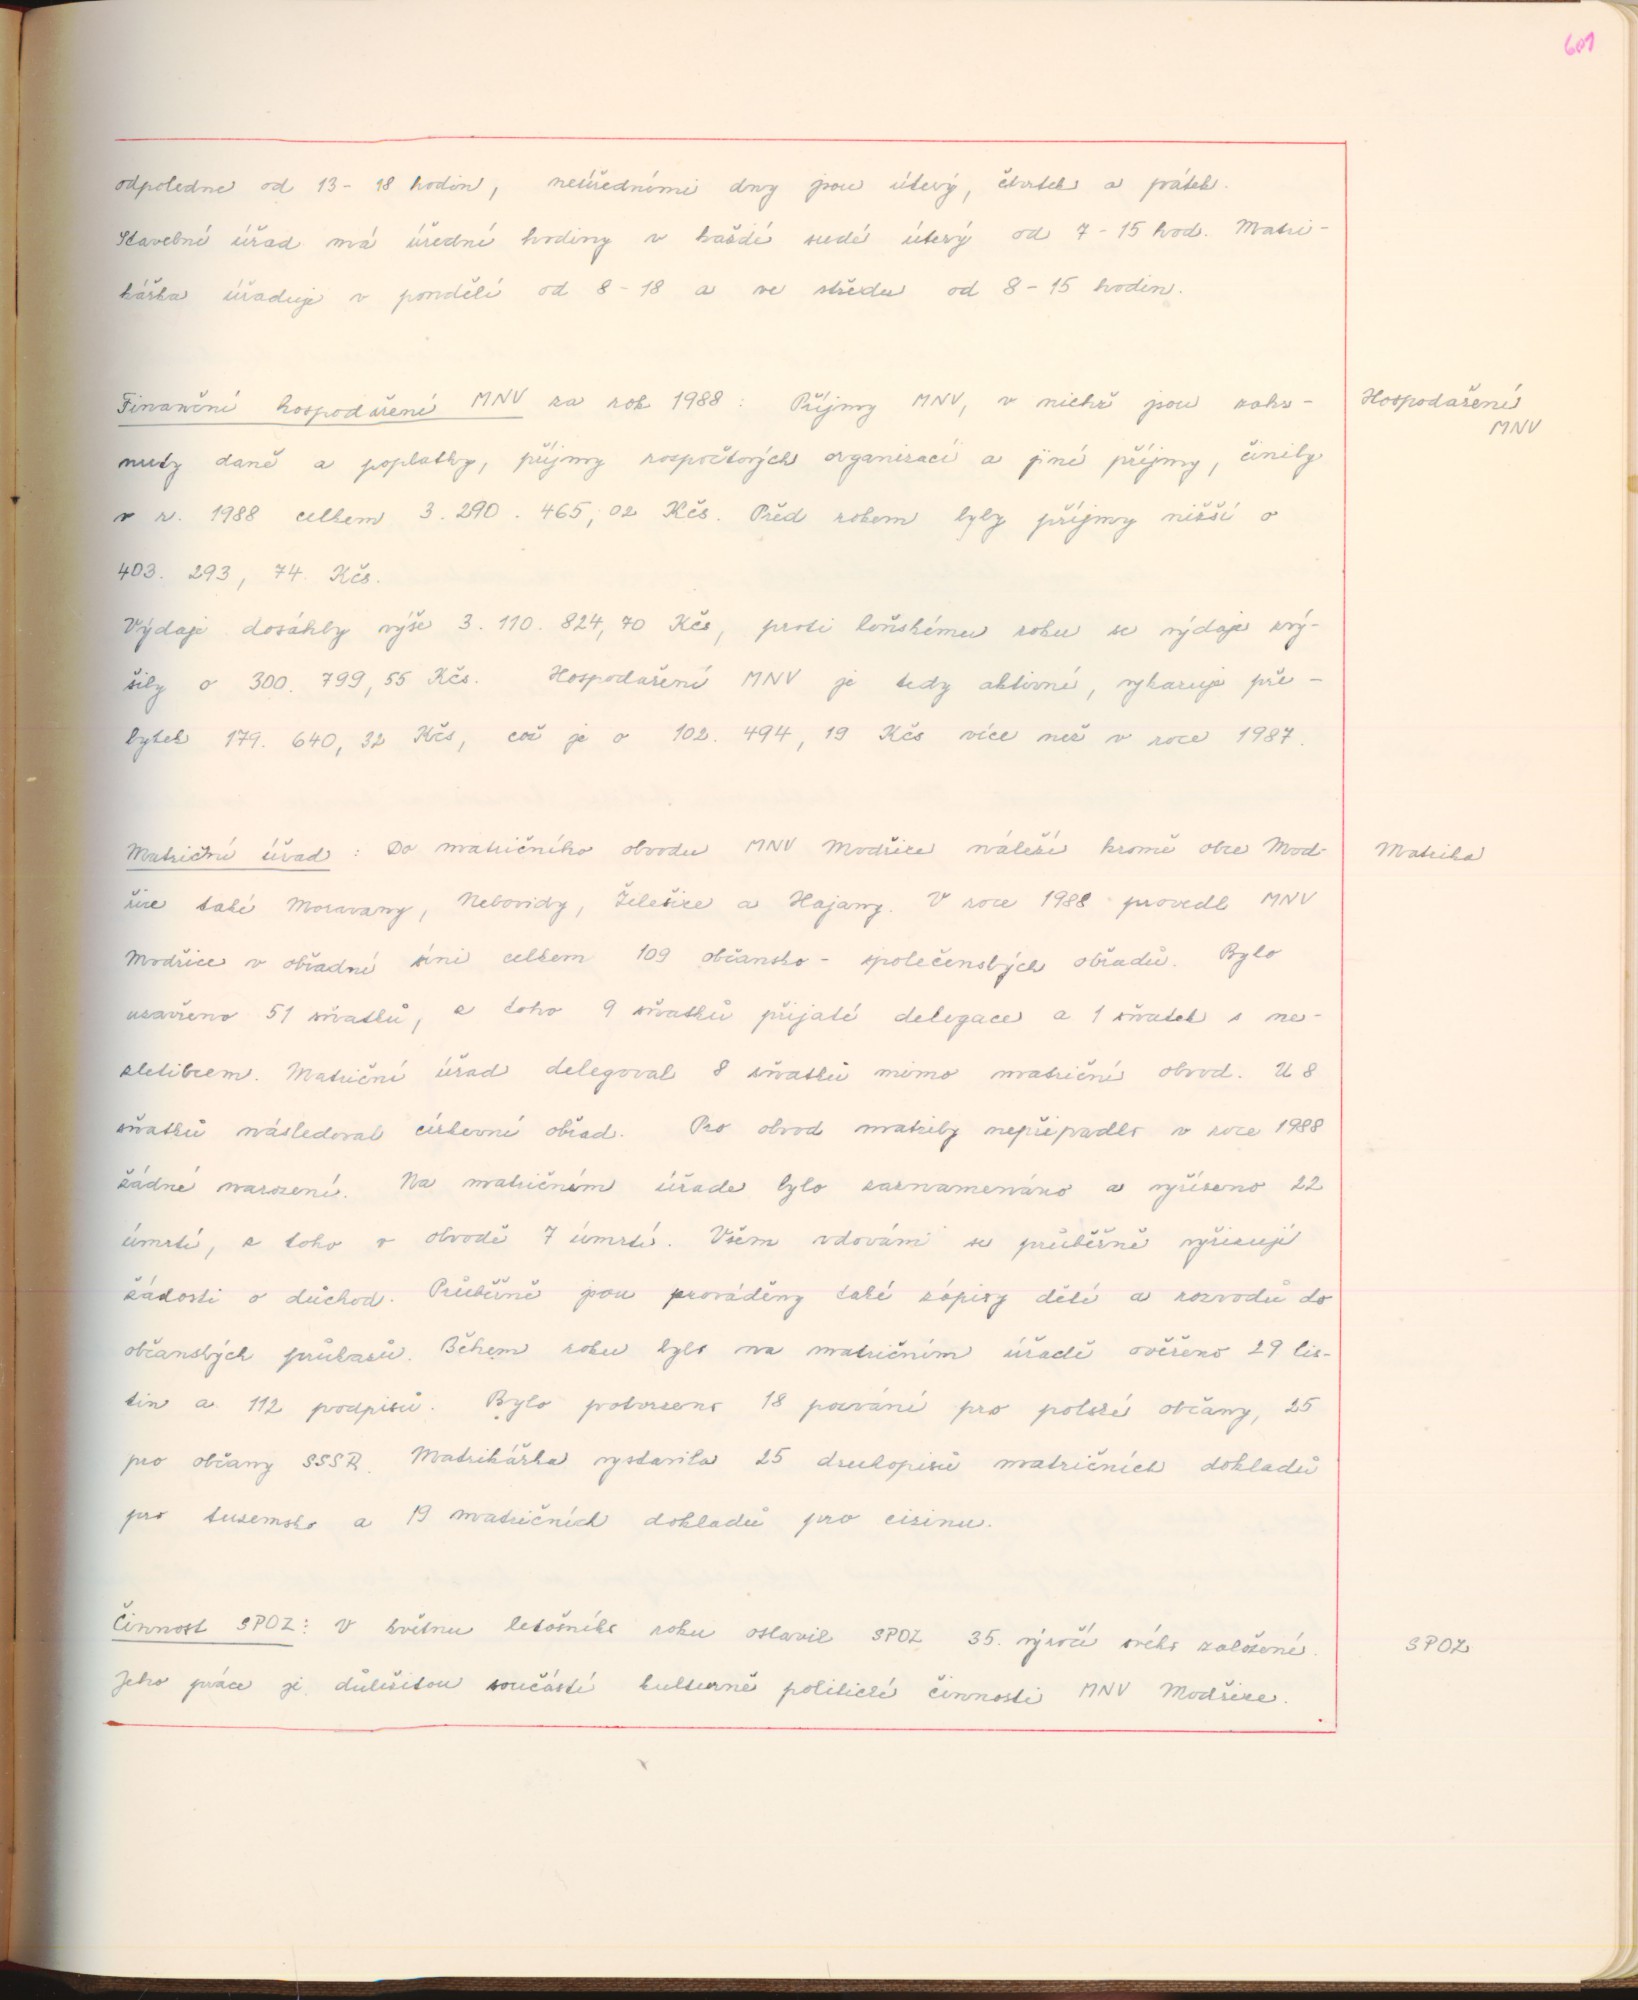 601
odpoledne od 13 - 18 hodin, neúředními dny jsou úterý, čtvrtek a pátek.
Stavební úřad má úřední hodiny v každé sudé úterý od 7 - 15 hod. Matri-
kářka úřaduje v pondělí od 8 - 18 a ve středu od 8 - 15 hodin.
Finanční hospodaření MNV za rok 1988 : Příjmy MNV, v nichž jsou zahr-
Hospodaření
MNV
nuty daně a poplatky, příjmy rozpočtových organizací a jiné příjmy, činily
v r. 1988 celkem 3. 290. 465, 02 Kčs. Před rokem byly příjmy nižší o
403. 293, 74 Kčs.
Výdaje dosáhly výše 3. 110. 824, 70 Kčs, proti loňskému roku se výdaje zvý-
šily o 300. 799, 55 Kčs. Hospodaření MNV je tedy aktivní, vykazuje pře-
bytek 179. 640, 32 Kčs, což je o 102. 494, 19 Kčs více než v roce 1987.
Matriční úřad : Do matričního obvodu MNV Modřice náleží kromě obce Mod-
Matrika
řice také Moravany, Nebovidy, Želešice a Hajany. V roce 1988 provedl MNV
Modřice v obřadní síni celkem 109 občansko - společenských obřadů. Bylo
uzavřeno 51 sňatků, z toho 9 sňatků přijaté delegace a 1 sňatek s ne-
zletilcem. Matriční úřad delegoval 8 sňatků mimo matriční obvod. U 8
sňatků následoval církevní obřad. Pro obvod matriky nepřipadlo v roce 1988
žádné narození. Na matričním úřade bylo zaznamenáno a vyřízeno 22
úmrtí, z toho v obvodě 7 úmrtí. Všem vdovám se průběžně vyřizují
žádosti o důchod. Průběžně jsou prováděny také zápisy dětí a rozvodů do
občanských průkazů. Během roku bylo na matričním úřadě ověřeno 29 lis-
tin a 112 podpisů. Bylo potvrzeno 18 pozvání pro polské občany, 25
pro občany SSSR. Matrikářka vystavila 25 druhopisů matričních dokladů
pro tuzemsko a 19 matričních dokladů pro cizinu.
Činnost SPOZ : V květnu letošního roku oslavil SPOZ 35. výročí svého založení.
SPOZ
Jeho práce je důležitou součástí kulturně politické činnosti MNV Modřice.